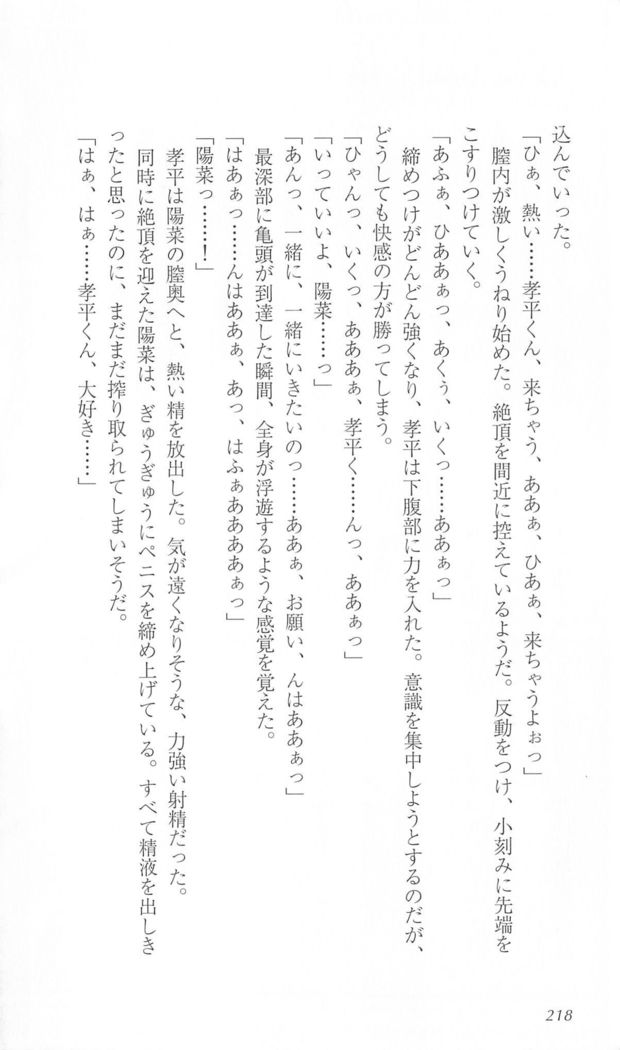 込んでいった。
「ひぁ、熱い……孝平くん、来ちゃう、ああぁ、ひあぁ、来ちゃうよぉっ」
膣内が激しくうねり始めた。絶頂を間近に控えているようだ。反動をつけ、小刻みに先端を
こすりつけていく。
「あふぁ、ひああぁっ、あくぅ、いくっ……ああぁっ」
締めつけがどんどん強くなり、孝平は下腹部に力を入れた。意識を集中しようとするのだが、
どうしても快感の方が勝ってしまう。
「ひゃんっ、いくっ、あああぁ、孝平く……んっ、ああぁっ」
「いっていいよ、陽菜……っ」
「あんっ、一緒に、一緒にいきたいのっ……ああぁ、お願い、んはああぁっ」
最深部に亀頭が到達した瞬間、全身が浮遊するような感覚を覚えた。
「はあぁっ……んはああぁ、あっ、はふぁああああぁっ」
「陽菜っ……！」
孝平は陽菜の膣奥へと、熱い精を放出した。気が遠くなりそうな、力強い射精だった。
同時に絶頂を迎えた陽菜は、ぎゅうぎゅうにペニスを締め上げている。すべて精液を出しき
ったと思ったのに、まだまだ搾り取られてしまいそうだ。
「はぁ、はぁ……孝平くん、大好き……」
218